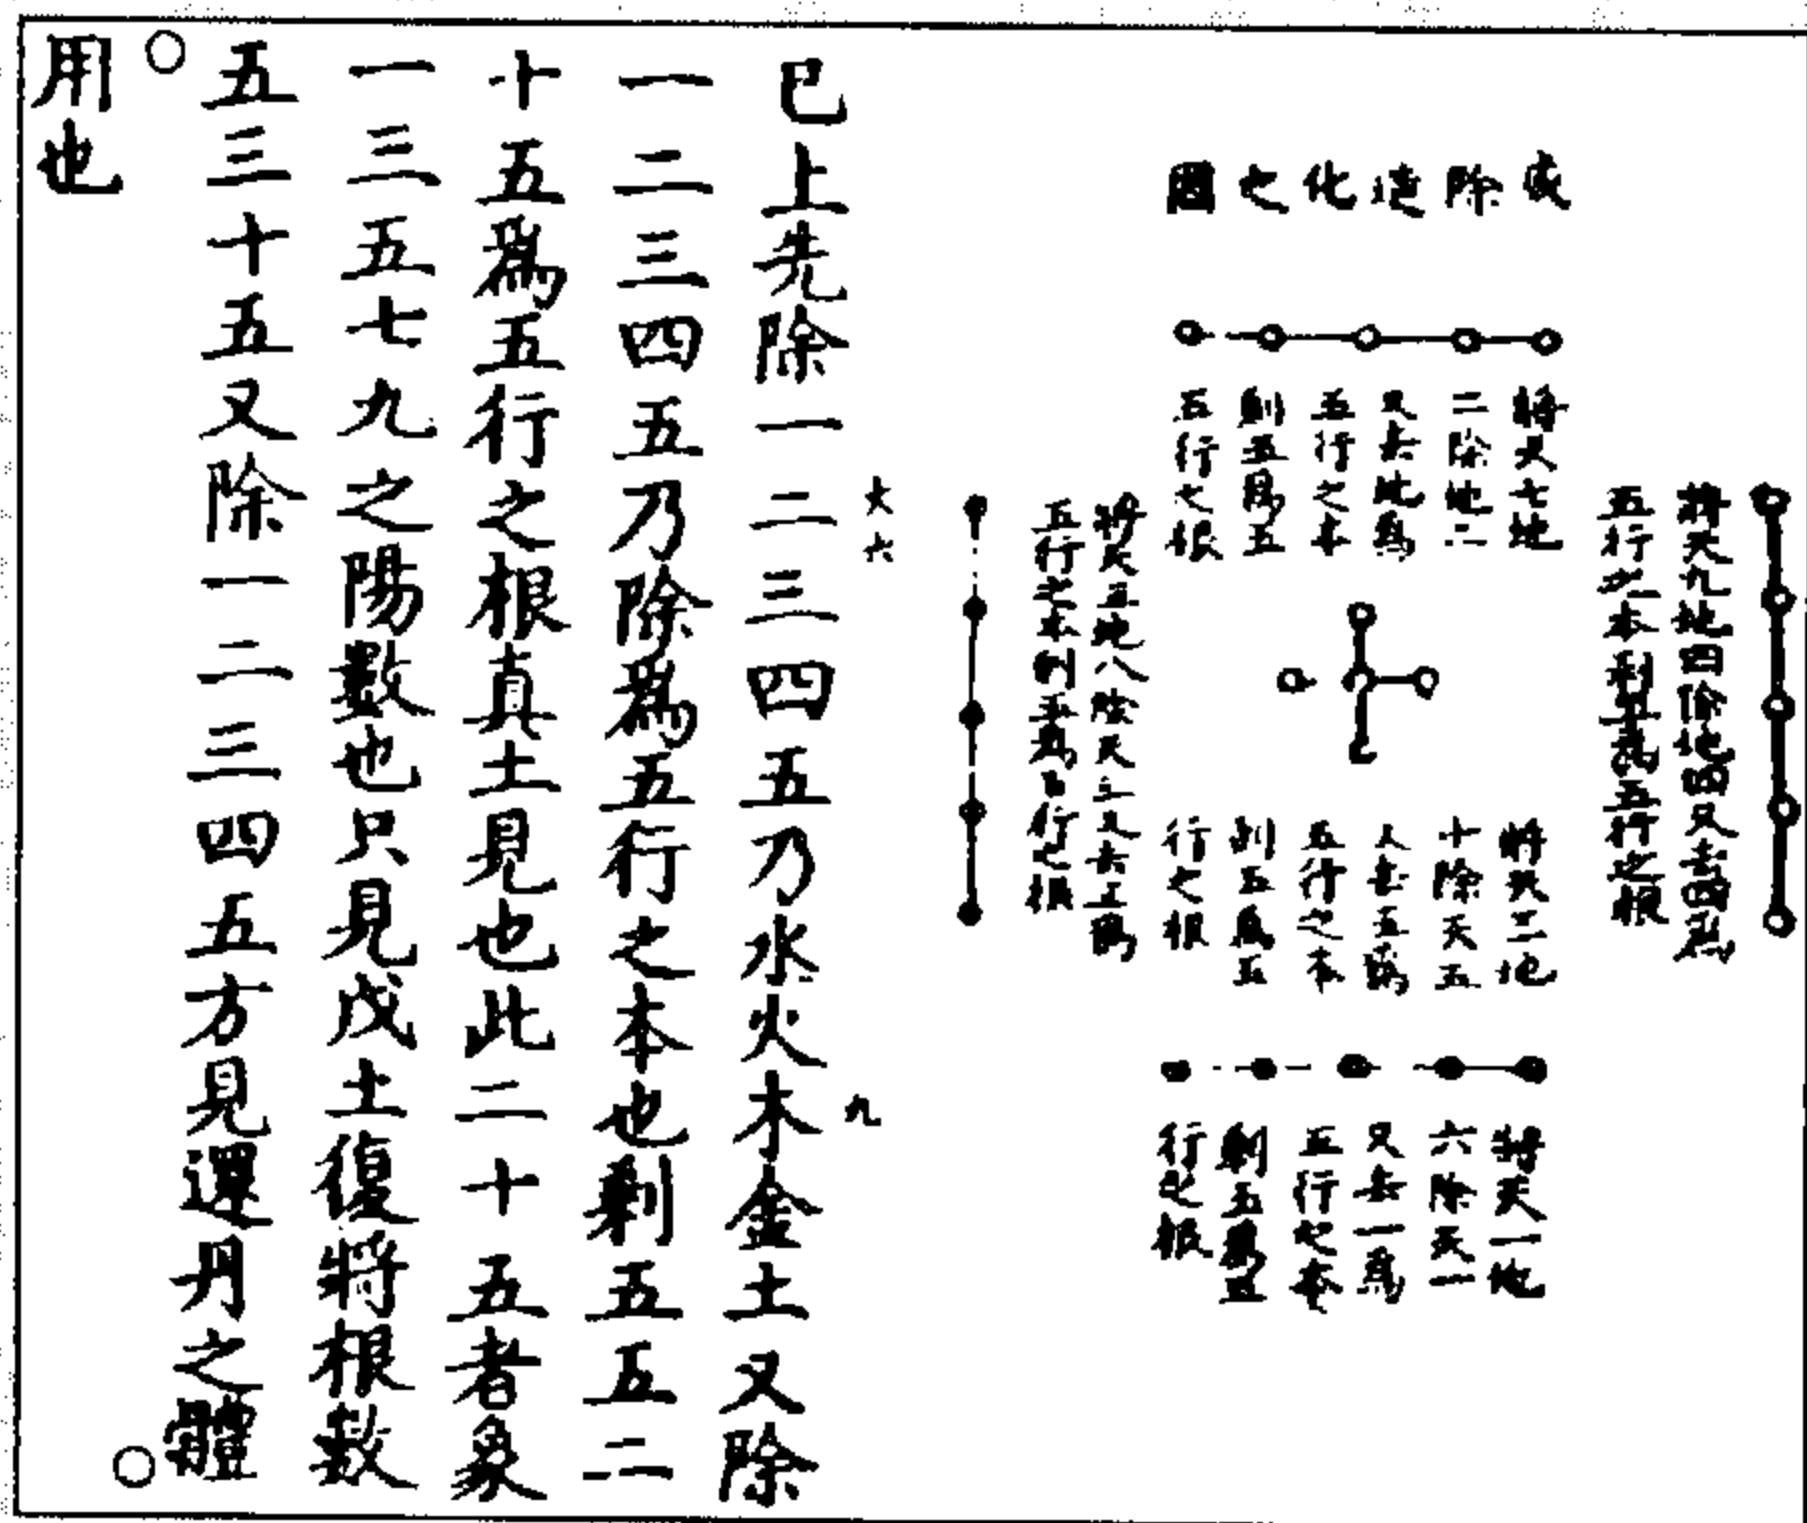 成除造化之圖
將天九地四除地四又去四為
五行之本剩五為五行之根
將天七地
二除地二
又去地為
五行之本
剩五為五
五行之根
將天三地八除天三又去三為
五行之本剩五為五行之根
將天五地
十除天五
又去五為
五行之本
剩五為五
行之根
將天一地
六除天一
又去一為
五行之本
剩五為五
行之根
大六
九
已上先除一二三四五乃水火木金土又除
一二三四五乃除為五行之本也剩五五二
十五為五行之根真土見也此二十五者象
一三五七九之陽數也只見戊土復將根數
五三十五又除一二三四五方見還丹之體
用也